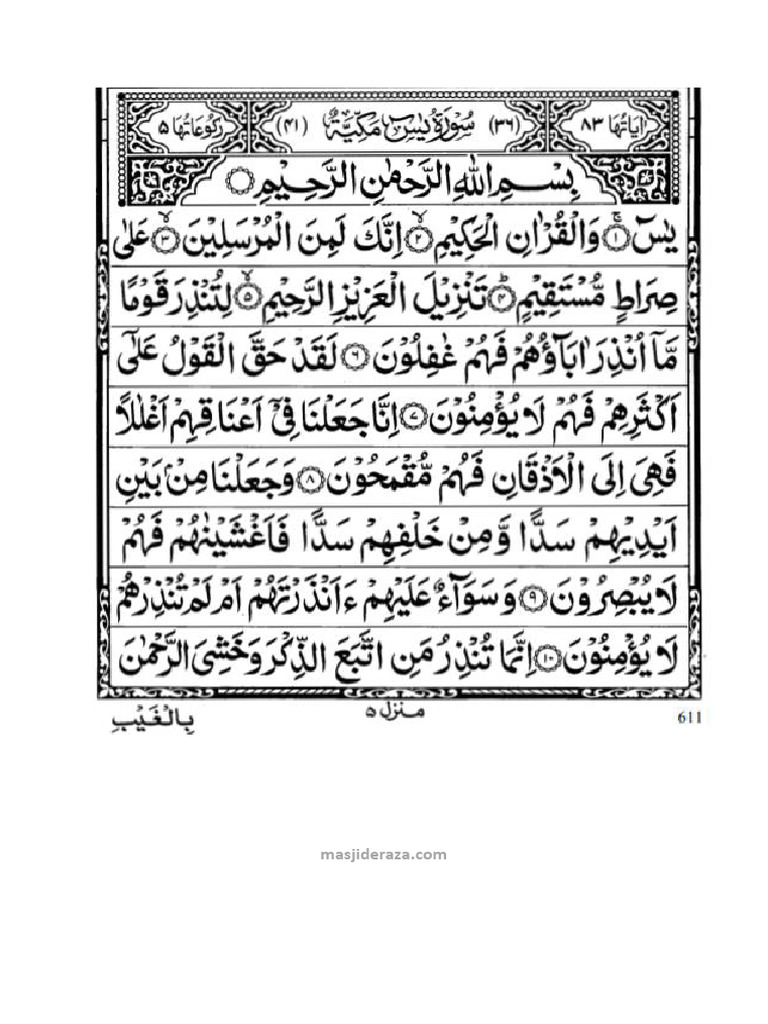 اٰيَاتُهَا ٨٣ (٣٦) سُوْرَةُ يٰسٓ مَكِّيَّةٌ (٤١) رُكُوْعَاتُهَا ٥
بِسْمِ اللّٰهِ الرَّحْمٰنِ الرَّحِيْمِ ۝
يٰسٓ ۝١ۚ وَالْقُرْاٰنِ الْحَكِيْمِ ۝٢ۙ اِنَّكَ لَمِنَ الْمُرْسَلِيْنَ ۝٣ۙ عَلٰى
صِرَاطٍ مُّسْتَقِيْمٍ ۝٤ؕ تَنْزِيْلَ الْعَزِيْزِ الرَّحِيْمِ ۝٥ۙ لِتُنْذِرَ قَوْمًا
مَّاۤ اُنْذِرَ اٰبَآؤُهُمْ فَهُمْ غٰفِلُوْنَ ۝٦ لَقَدْ حَقَّ الْقَوْلُ عَلٰٓى
اَكْثَرِهِمْ فَهُمْ لَا يُؤْمِنُوْنَ ۝٧ اِنَّا جَعَلْنَا فِىْۤ اَعْنَاقِهِمْ اَغْلٰلًا
فَهِىَ اِلَى الْاَذْقَانِ فَهُمْ مُّقْمَحُوْنَ ۝٨ وَجَعَلْنَا مِنْۢ بَيْنِ
اَيْدِيْهِمْ سَدًّا وَّمِنْ خَلْفِهِمْ سَدًّا فَاَغْشَيْنٰهُمْ فَهُمْ
لَا يُبْصِرُوْنَ ۝٩ وَسَوَآءٌ عَلَيْهِمْ ءَاَنْذَرْتَهُمْ اَمْ لَمْ تُنْذِرْهُمْ
لَا يُؤْمِنُوْنَ ۝١٠ اِنَّمَا تُنْذِرُ مَنِ اتَّبَعَ الذِّكْرَ وَخَشِىَ الرَّحْمٰنَ
بِالْغَيْبِ منزل ٥ 611
masjideraza.com